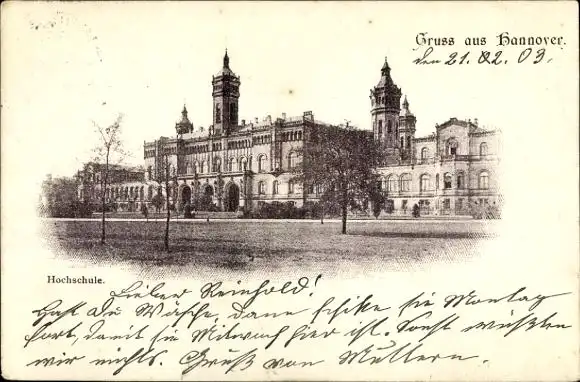 Gruss aus Hannover.
den 21. 02. 03.
Hochschule.
Lieber Reinhold!
Hast Du Wäsche, dann schike sie Montag
fort, damit sie Mitwoch hier ist. Sonst wüßten
wir nichts. Gruß von Muttern.